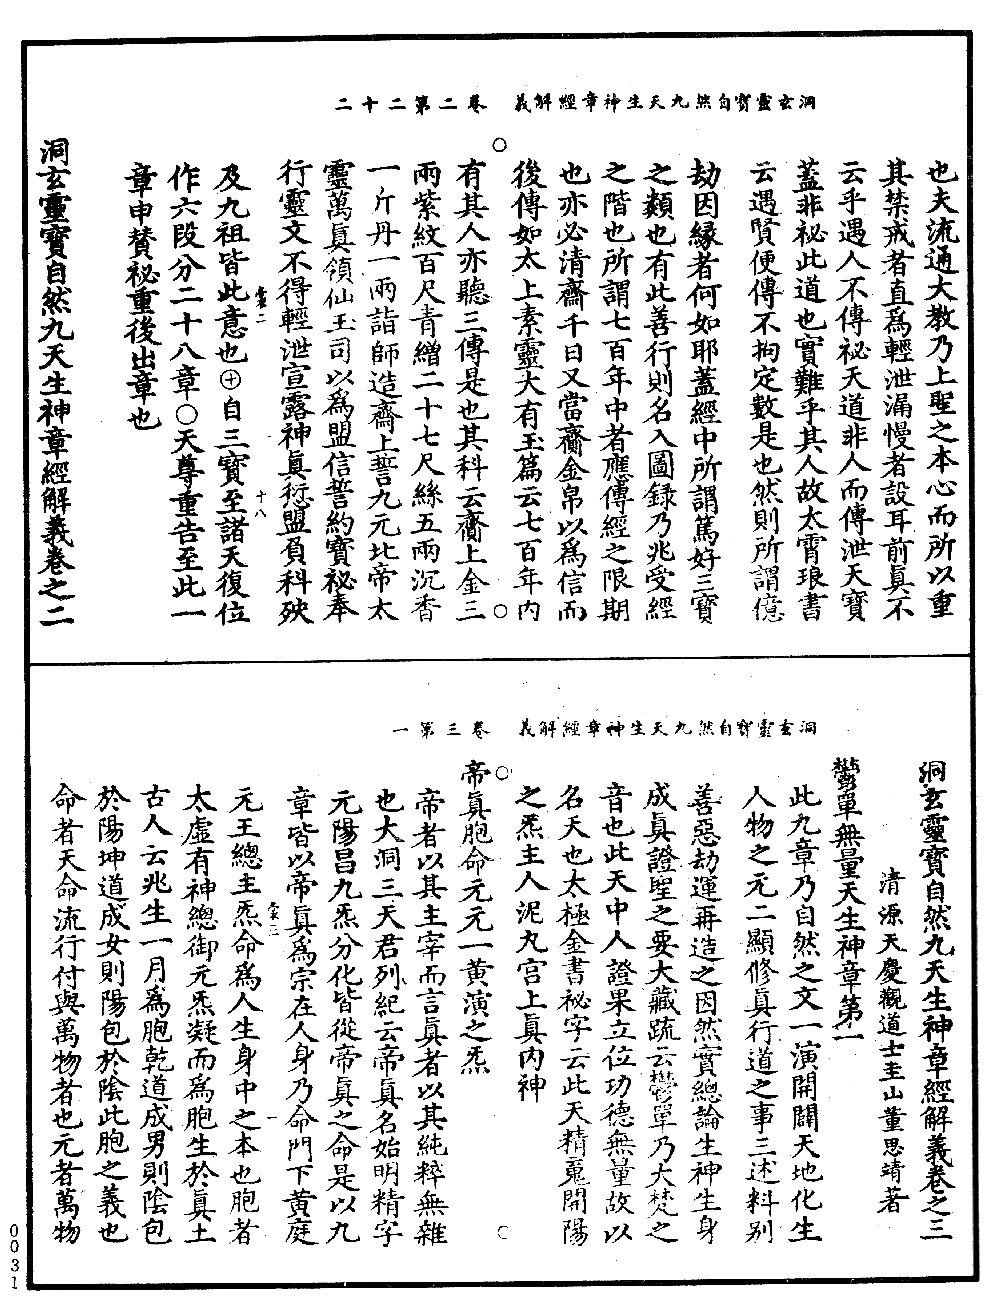 洞玄靈寶自然九天生神章經解義　卷二第二十二
也夫流通大教乃上聖之本心而所以重
其禁戒者直爲輕泄漏慢者設耳前眞不
云乎遇人不傳祕天道非人而傳泄天寶
蓋非祕此道也實難乎其人故太霄琅書
云遇賢便傳不拘定數是也然則所謂億
劫因緣者何如耶蓋經中所謂篤好三寶
之類也有此善行則名入圖錄乃兆受經
之階也所謂七百年中者應傳經之限期
也亦必清齋千日又當齎金帛以爲信而
後傳如太上素靈大有玉篇云七百年内
有其人亦聽三傳是也其科云齎上金三
兩紫紋百尺青繒二十七尺絲五兩沉香
一斤丹一兩詣師造齋上誓九元北帝太
靈萬眞領仙玉司以爲盟信誓約寶祕奉
行靈文不得輕泄宣露神眞愆盟負科殃
及九祖皆此意也㊉自三寶至諸天復位
作六段分二十八章○天尊重告至此一
章申贊祕重後出章也
洞玄靈寶自然九天生神章經解義卷之二
洞玄靈寶自然九天生神章經解義　卷三第一
洞玄靈寶自然九天生神章經解義卷之三
清源天慶觀道士圭山董思靖著
鬱單無量天生神章第一
此九章乃自然之文一演開闢天地化生
人物之元二顯修眞行道之事三述料別
善惡劫運再造之因然實總論生神生身
成眞證聖之要大藏疏云鬱單乃大梵之
音也此天中人證果立位功德無量故以
名天也太極金書祕字云此天精䰟開陽
之炁主人泥丸宫上眞内神
帝眞胞命元元一黄演之炁
帝者以其主宰而言眞者以其純粹無雜
也大洞三天君列紀云帝眞名始明精字
元陽昌九炁分化皆從帝眞之命是以九
章皆以帝眞爲宗在人身乃命門下黄庭
元王總主炁命爲人生身中之本也胞者
太虛有神總御元炁凝而爲胞生於眞土
古人云兆生一月爲胞乾道成男則陰包
於陽坤道成女則陽包於陰此胞之義也
命者天命流行付與萬物者也元者萬物
0031